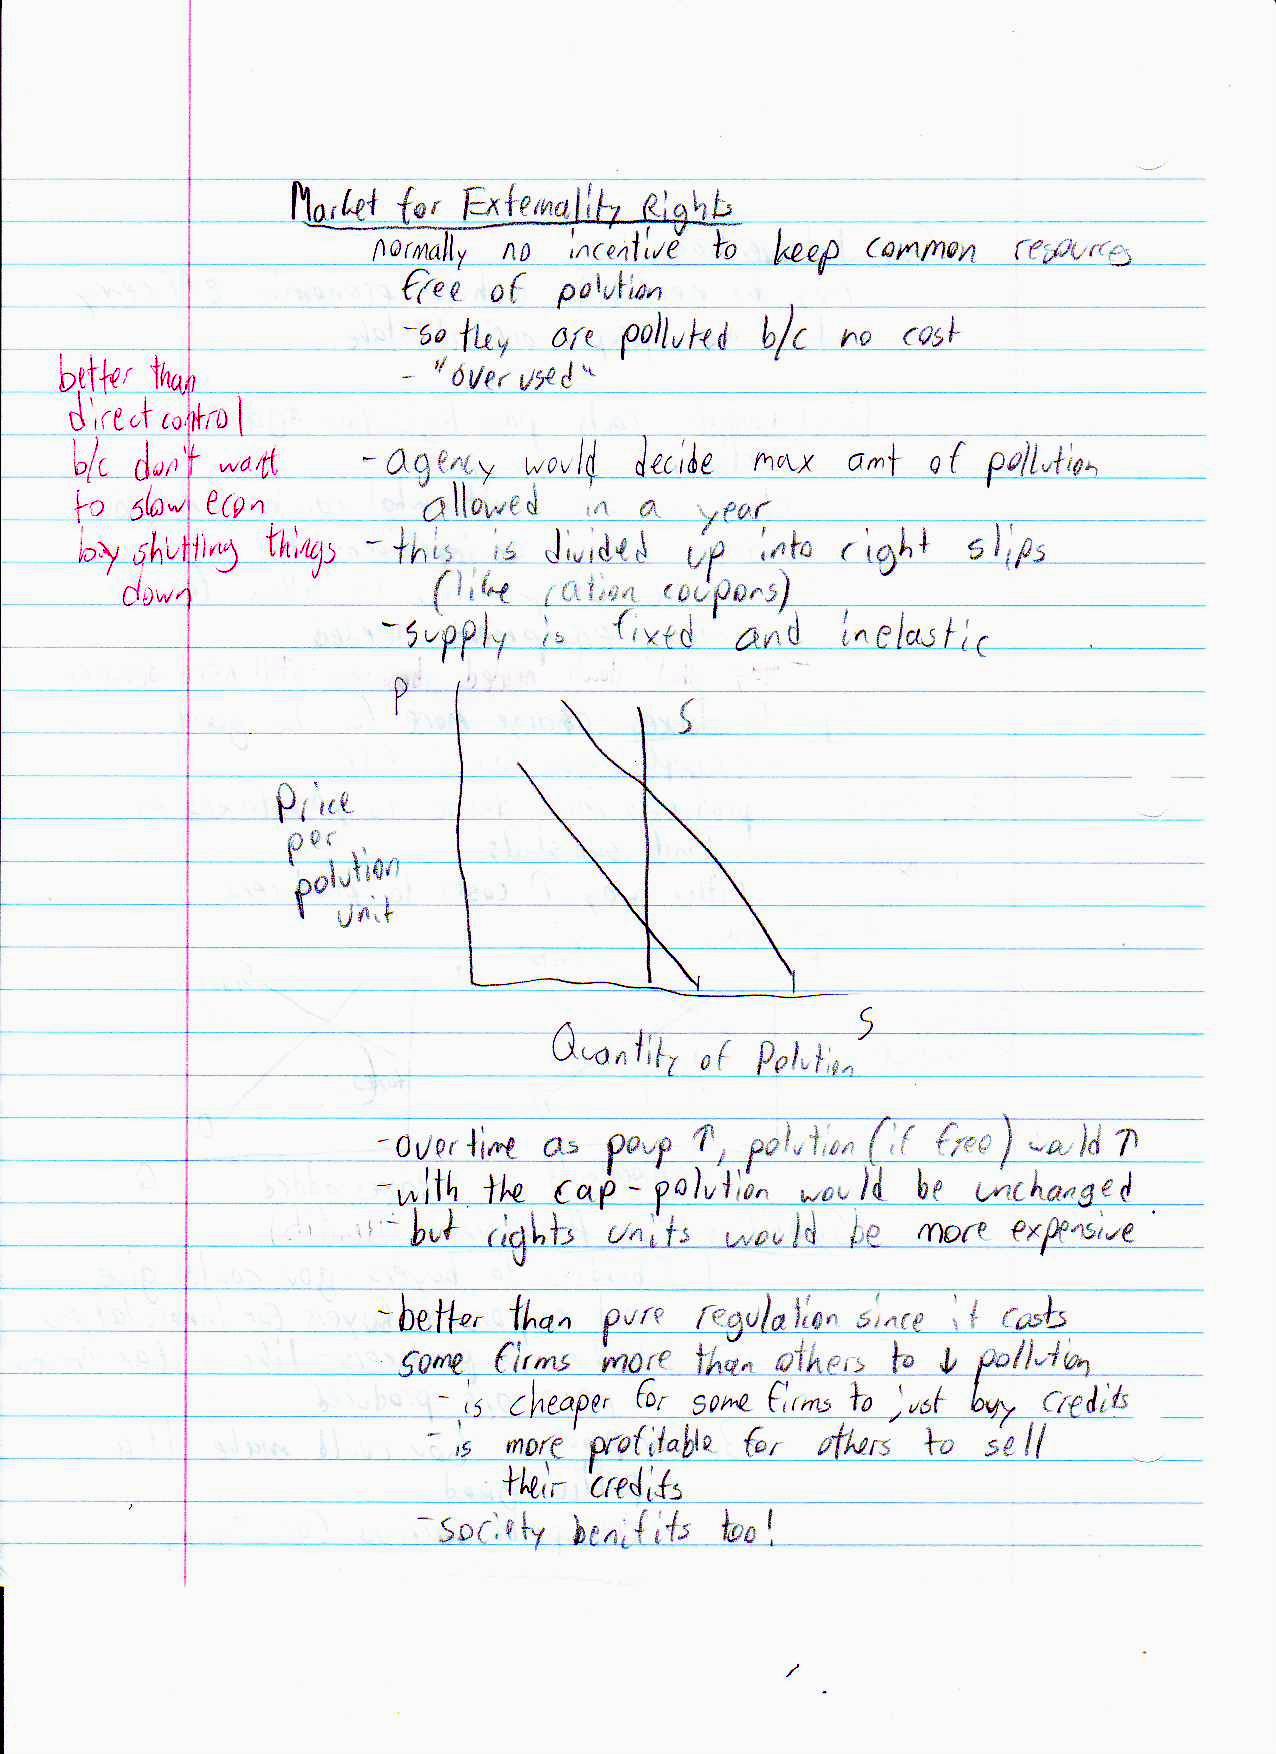 Market for Externality Rights
normally no incentive to keep common resources
free of polution
-so they are polluted b/c no cost
- "over used"
better than
direct control
b/c don't want
to slow econ
by shutting things
down
-agency would decide max amt of pollution
allowed in a year
-this is divided up into right slips
(like ration coupons)
-supply is fixed and inelastic
P
S
Price
per
polution
unit
S
Quantity of Polution
-over time as poup ↑, polution (if free) would ↑
-with the cap - polution would be unchanged
- but rights units would be more expensive
-better than pure regulation since it costs
some firms more than others to ↓ pollution
- is cheaper for some firms to just buy credits
- is more profitable for others to sell
their credits
-society benifits too!